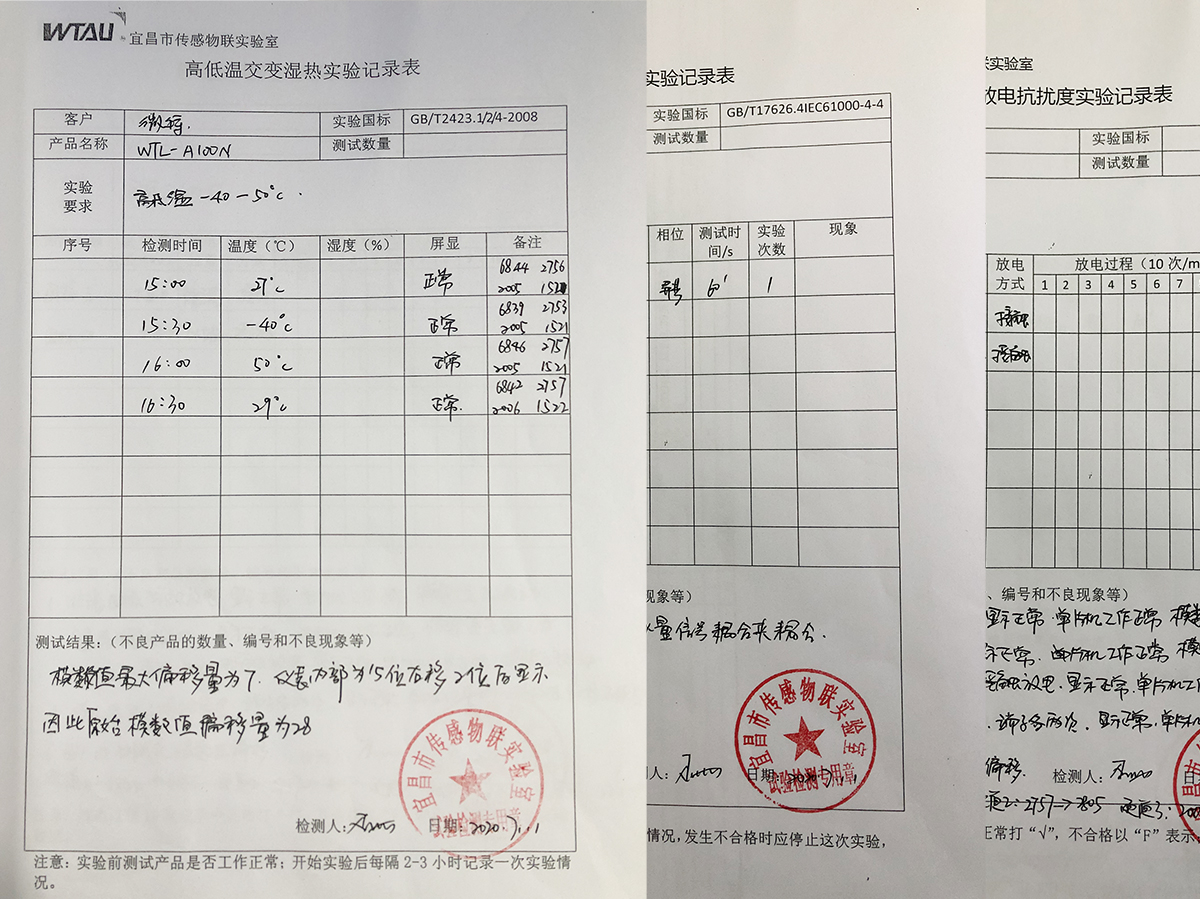 WTAU 宜昌市传感物联实验室
高低温交变湿热实验记录表
客户 实验国标 GB/T2423.1/2/4-2008
产品名称 WTL-A100N 测试数量
实验要求 高低温-40-50℃.
序号 检测时间 温度(℃) 湿度(%) 屏显 备注
15:00 27℃ 正常 6844 2756
2005 1521
15:30 -40℃ 正常 6839 2753
2005 1521
16:00 50℃ 正常 6846 2757
2005 1521
16:30 29℃ 正常. 6842 2757
2006 1522
测试结果:(不良产品的数量、编号和不良现象等)
模数值最大偏移量为7.仪表内部为15位右移2位后显示
因此原始模数值偏移量为28
宜昌市传感物联实验室
试验检测专用章
检测人: 日期:2020.7.1
注意:实验前测试产品是否工作正常;开始实验后每隔2-3小时记录一次实验情
况。
实验记录表
实验国标 GB/T17626.4IEC61000-4-4
测试数量
相位 测试时间/s 实验次数 现象
60' 1
现象等)
量信号耦合夹耦合.
宜昌市传感物联实验室
试验检测专用章
人: 日期:
情况,发生不合格时应停止这次实验,
实验室
放电抗扰度实验记录表
实验国标
测试数量
放电方式 放电过程(10次/m
1 2 3 4 5 6 7
、编号和不良现象等)
显示正常.单片机工作正常 模
示正常.单片机工作正常 模
放电.显示正常.单片机工
显示正常.单片机
偏移.
检测人:
2757→2805
正常打“√”,不合格以“F”表示